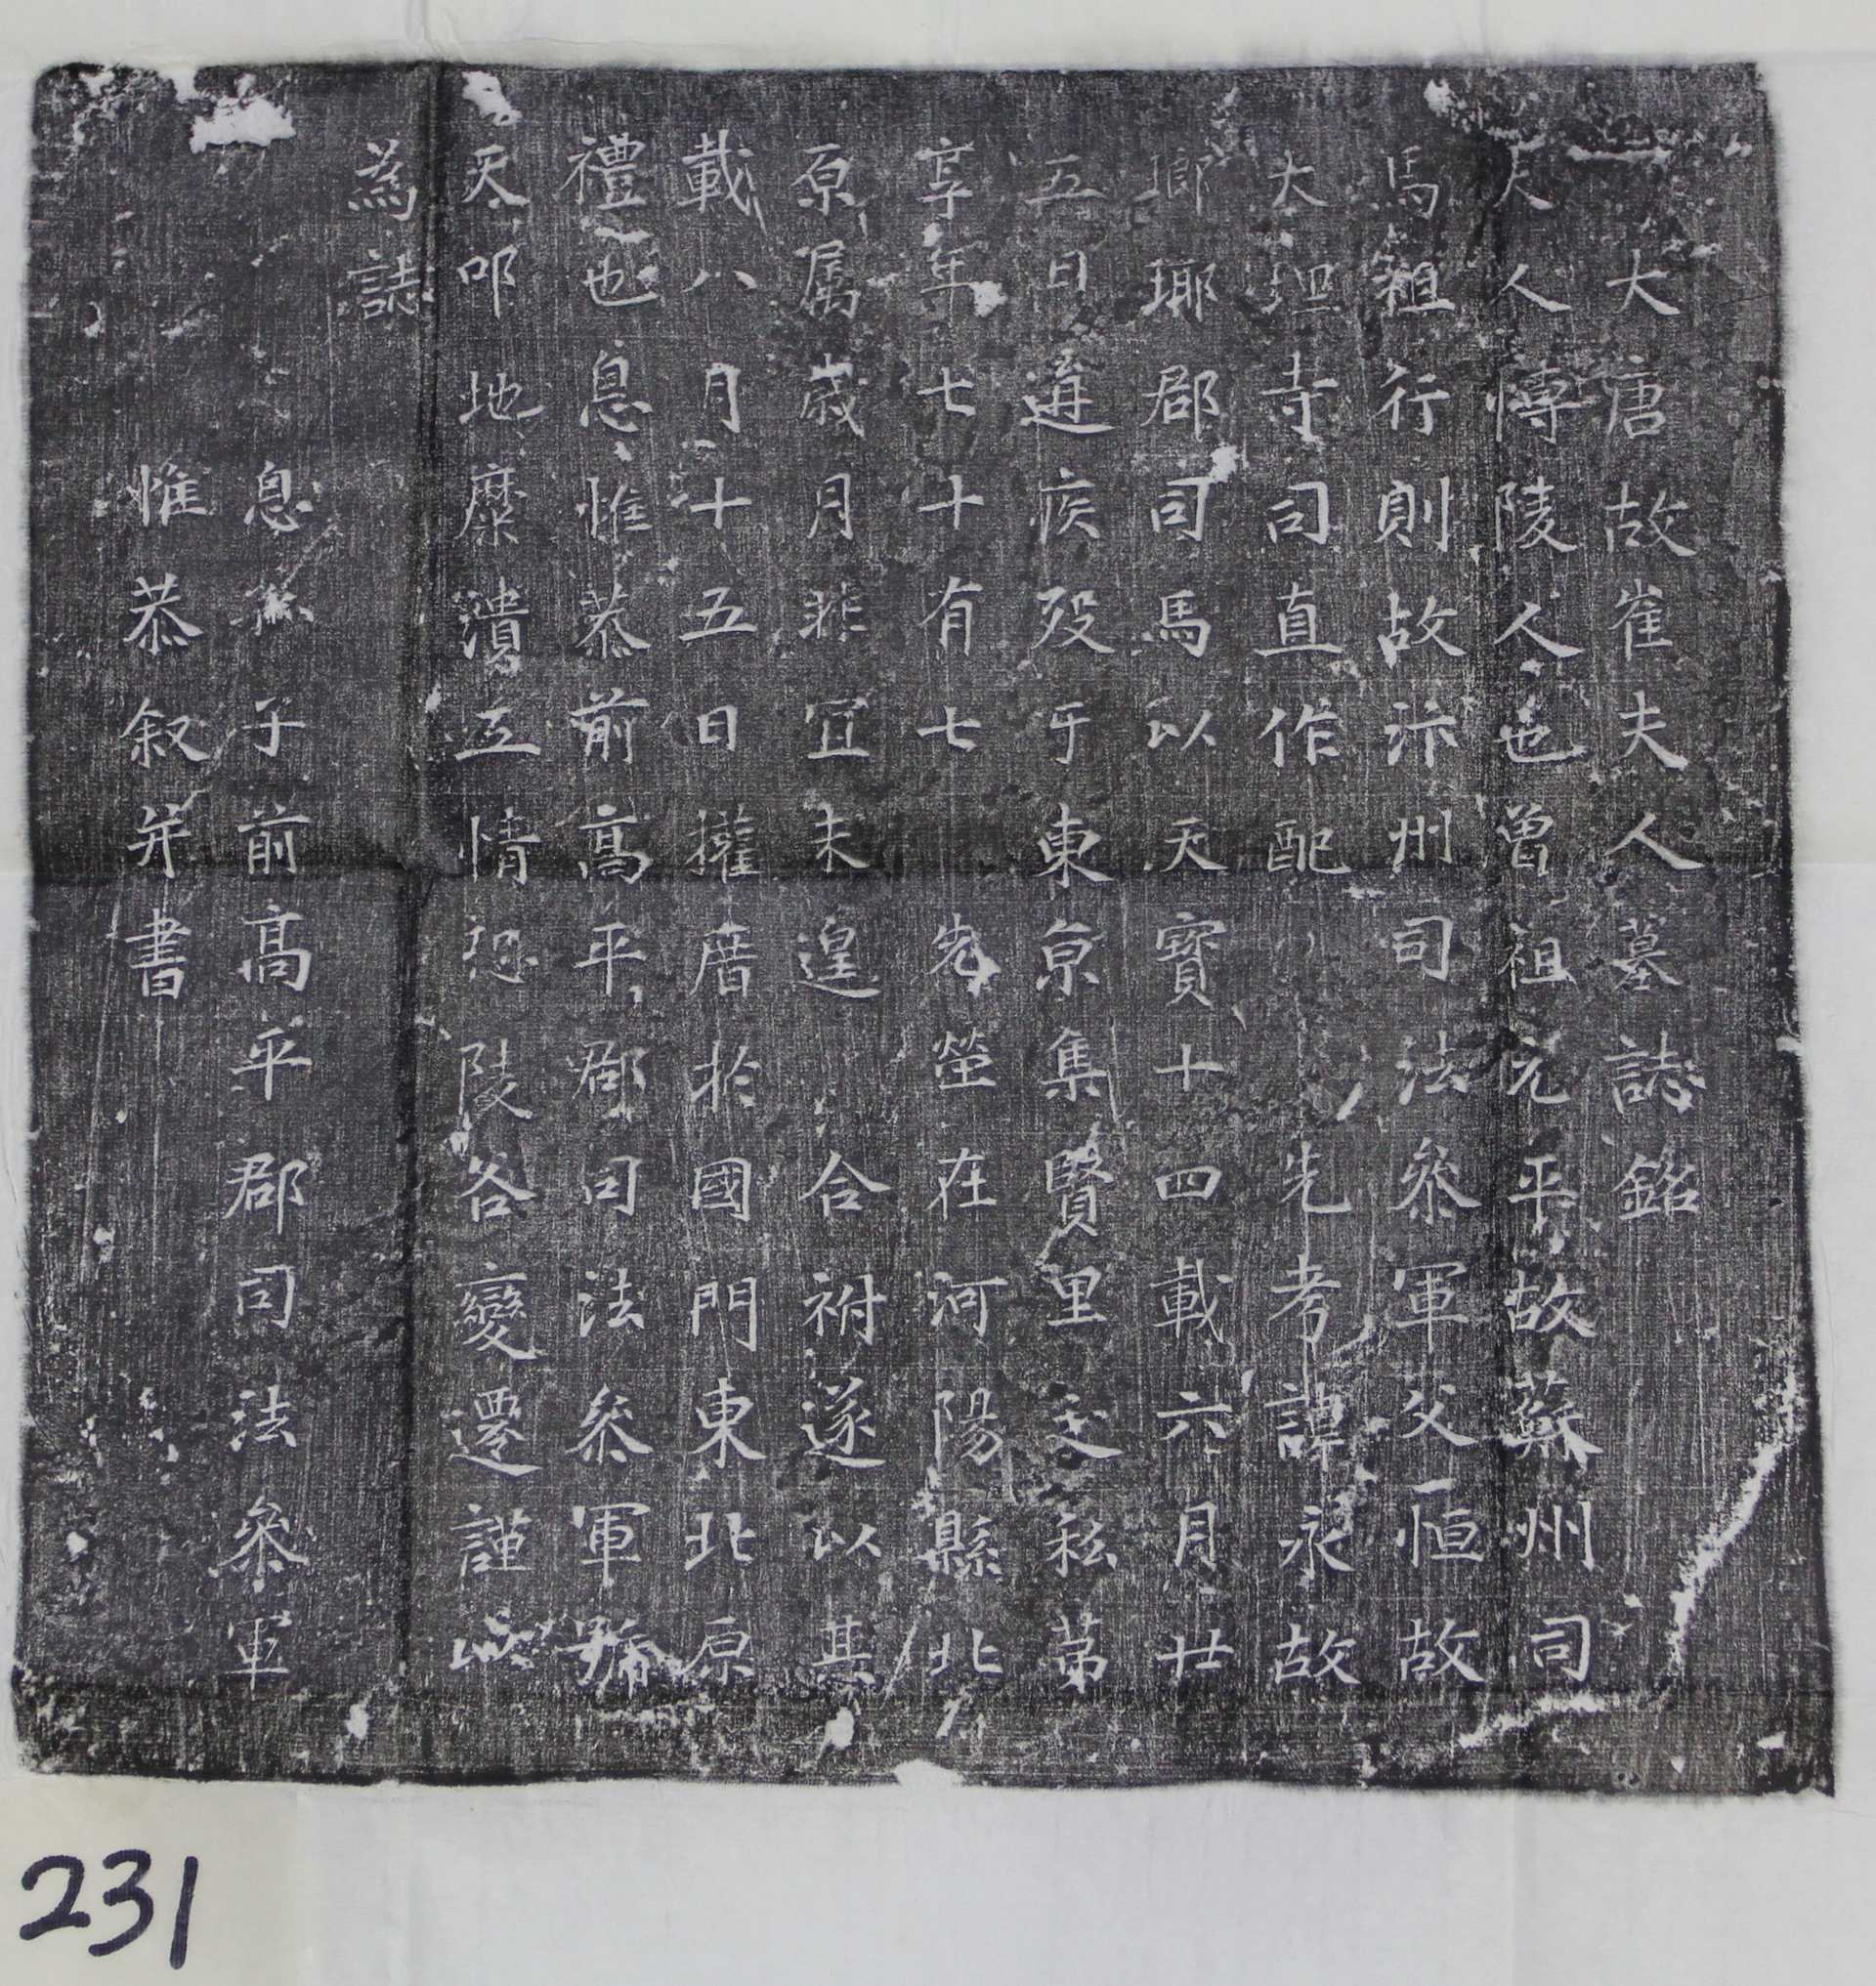 大唐故崔夫人墓誌銘
夫人博陵人也曾祖元平故蘇州司
馬祖行則故汴州司法參軍父恒故
大理寺司直作配　先考諱永故
瑯琊郡司馬以天寶十四載六月廿
五日遘疾歿于東京集賢里之私第
享年七十有七　先塋在河陽縣北
原屬歲月非宜未遑　合祔遂以其
載八月十五日權厝於國門東北原
禮也息惟恭前高平郡司法參軍號
天叩地糜潰五情恐陵谷變遷謹以
為誌
息子前高平郡司法參軍
惟恭叙并書
231